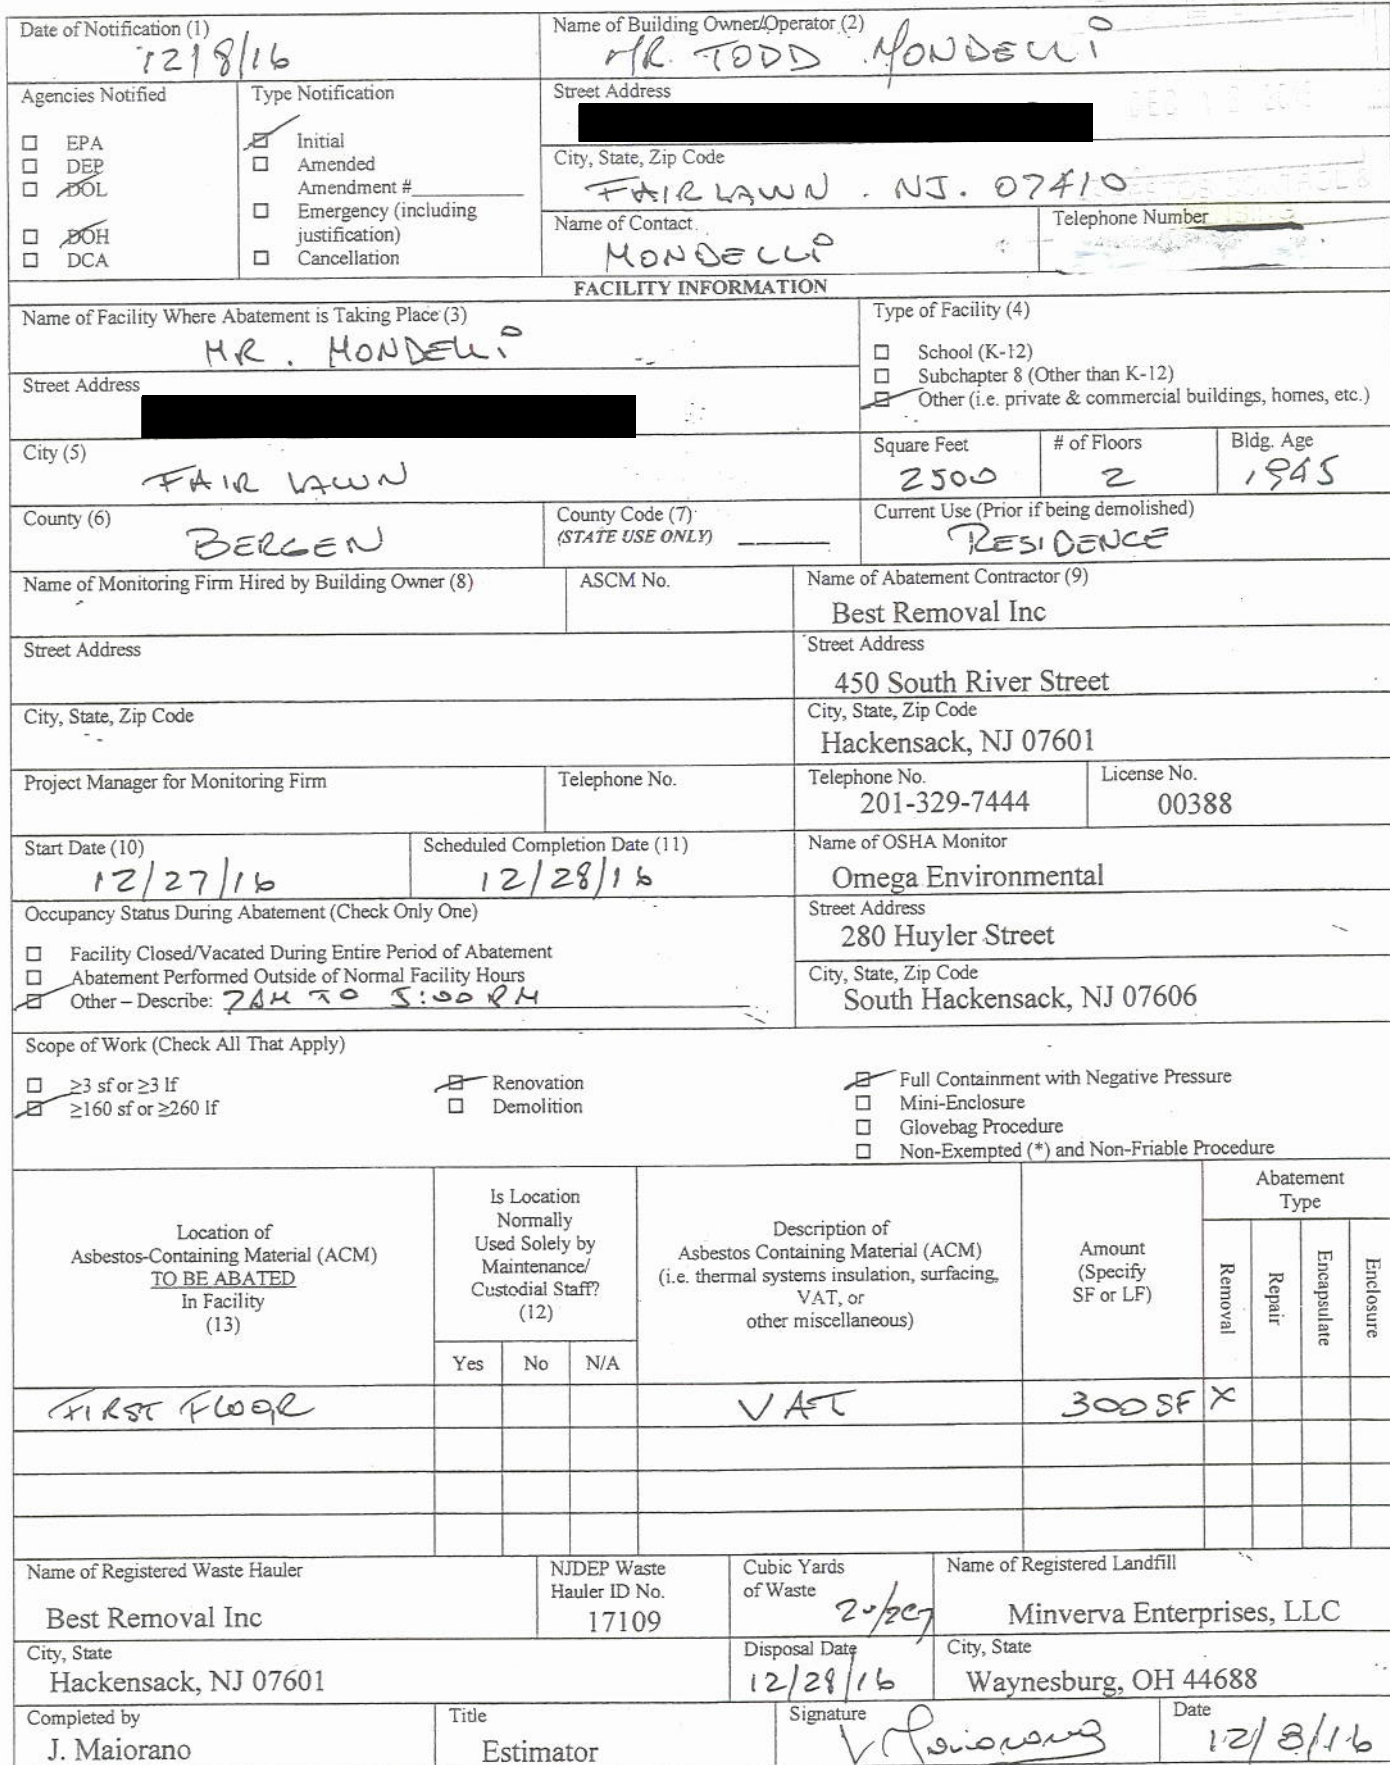 Date of Notification (1)
12/8/16
Name of Building Owner/Operator (2)
MR. TODD MONDELLI
Agencies Notified
☐ EPA
☐ DEP
☐ DOL
☐ DOH
☐ DCA
Type Notification
☑ Initial
☐ Amended
Amendment #
☐ Emergency (including
justification)
☐ Cancellation
Street Address
City, State, Zip Code
FAIR LAWN . NJ. 07410
Name of Contact
MONDELLI
Telephone Number
FACILITY INFORMATION
Name of Facility Where Abatement is Taking Place (3)
MR. MONDELLI
Type of Facility (4)
☐ School (K-12)
☐ Subchapter 8 (Other than K-12)
☑ Other (i.e. private & commercial buildings, homes, etc.)
Street Address
City (5)
FAIR LAWN
Square Feet
2500
# of Floors
2
Bldg. Age
1945
County (6)
BERGEN
County Code (7)
(STATE USE ONLY)
Current Use (Prior if being demolished)
RESIDENCE
Name of Monitoring Firm Hired by Building Owner (8)
ASCM No.
Name of Abatement Contractor (9)
Best Removal Inc
Street Address
Street Address
450 South River Street
City, State, Zip Code
City, State, Zip Code
Hackensack, NJ 07601
Project Manager for Monitoring Firm
Telephone No.
Telephone No.
201-329-7444
License No.
00388
Start Date (10)
12/27/16
Scheduled Completion Date (11)
12/28/16
Name of OSHA Monitor
Omega Environmental
Occupancy Status During Abatement (Check Only One)
☐ Facility Closed/Vacated During Entire Period of Abatement
☐ Abatement Performed Outside of Normal Facility Hours
☑ Other – Describe: 7AM TO 5:00 PM
Street Address
280 Huyler Street
City, State, Zip Code
South Hackensack, NJ 07606
Scope of Work (Check All That Apply)
☐ ≥3 sf or ≥3 lf
☑ ≥160 sf or ≥260 lf
☑ Renovation
☐ Demolition
☑ Full Containment with Negative Pressure
☐ Mini-Enclosure
☐ Glovebag Procedure
☐ Non-Exempted (*) and Non-Friable Procedure
Location of
Asbestos-Containing Material (ACM)
TO BE ABATED
In Facility
(13)
Is Location
Normally
Used Solely by
Maintenance/
Custodial Staff?
(12)
Yes No N/A
Description of
Asbestos Containing Material (ACM)
(i.e. thermal systems insulation, surfacing,
VAT, or
other miscellaneous)
Amount
(Specify
SF or LF)
Abatement
Type
Removal
Repair
Encapsulate
Enclosure
FIRST FLOOR VAT 300 SF X
Name of Registered Waste Hauler
Best Removal Inc
NJDEP Waste
Hauler ID No.
17109
Cubic Yards
of Waste
Name of Registered Landfill
Minverva Enterprises, LLC
City, State
Hackensack, NJ 07601
Disposal Date
12/28/16
City, State
Waynesburg, OH 44688
Completed by
J. Maiorano
Title
Estimator
Signature
Date
12/8/16